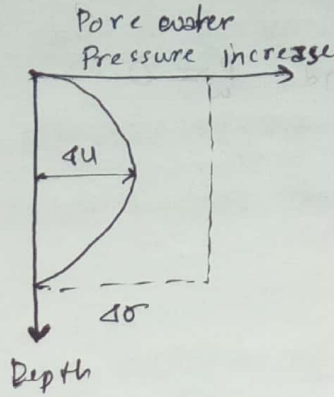 Pore water
Pressure increase
Δu
Δσ
Depth